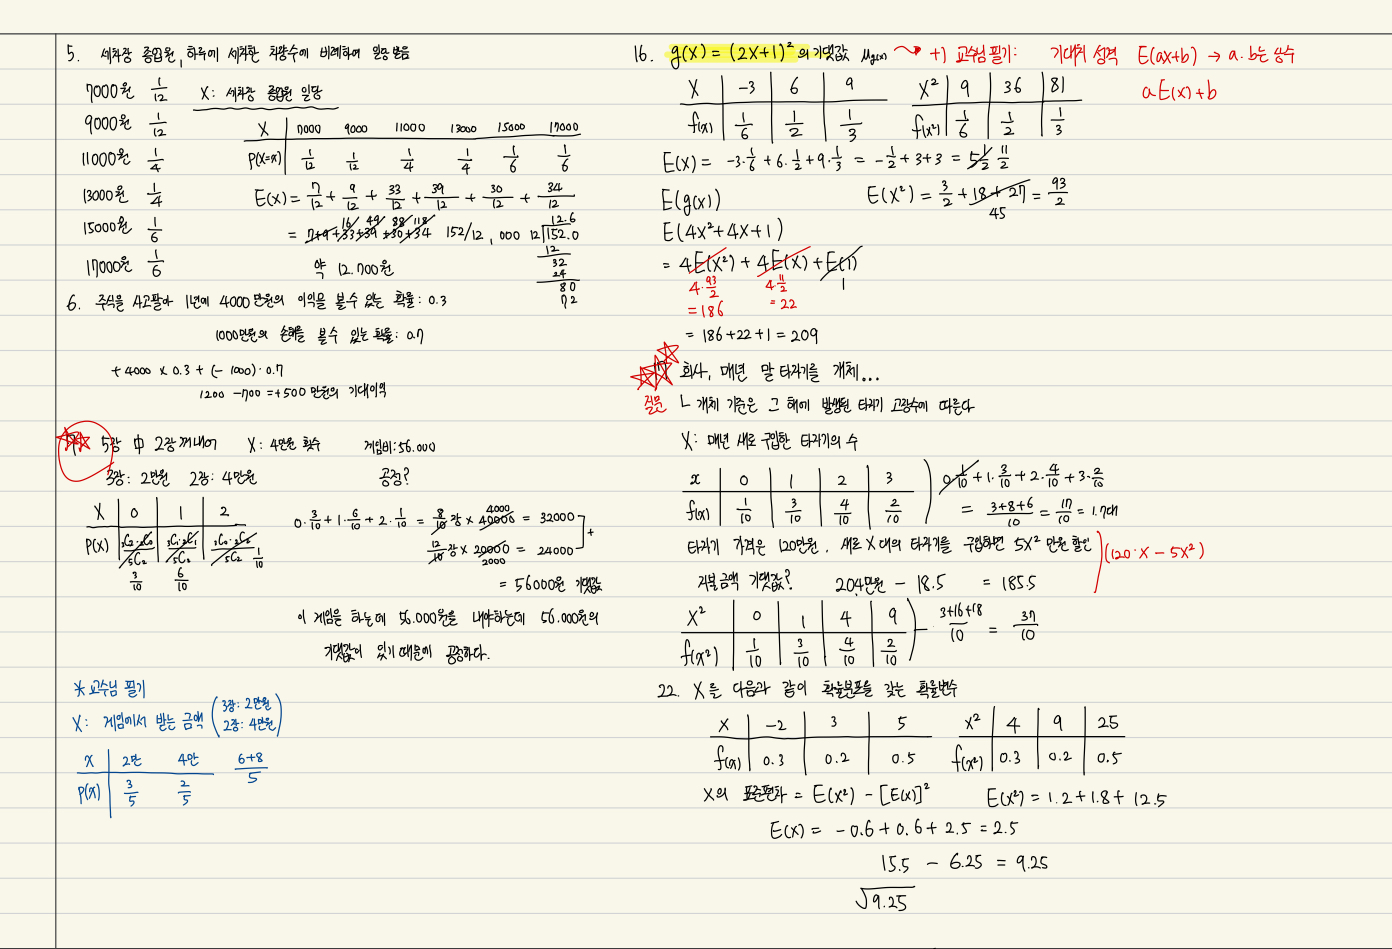 5. 세차장 종업원, 하루에 세차한 차량수에 비례하여 일당 받음
7000원 1/12 X: 세차장 종업원 일당
9000원 1/12
11000원 1/4
13000원 1/4
15000원 1/6
17000원 1/6
X 7000 9000 11000 13000 15000 17000
P(X=x) 1/12 1/12 1/4 1/4 1/6 1/6
E(X) = 7/12 + 9/12 + 33/12 + 39/12 + 30/12 + 34/12
16 49 88 118
= 7+9+33+39+30+34 152/12, 000
12.6
12√152.0
12
32
24
80
72
약 12.700원
6. 주식을 사고팔아 1년에 4000만원의 이익을 볼 수 있는 확률: 0.3
1000만원의 손해를 볼 수 있는 확률: 0.7
+4000 × 0.3 + (-1000)·0.7
1200 - 700 = +500 만원의 기대이익
7. 5장 中 2장 꺼내어 X: 4만원 횟수 게임비: 56.000
3장: 2만원 2장: 4만원 공정?
X 0 1 2
P(X) ₃C₂·₂C₀/₅C₂ ₃C₁·₂C₁/₅C₂ ₃C₀·₂C₂/₅C₂ 1/10
3/10 6/10
0·3/10 + 1·6/10 + 2·1/10 = 8/10장 × 40000 = 32000
4000
12/10장 × 20000 = 24000
2000
+
= 56000원 기댓값
이 게임을 하는데 56.000원을 내야하는데 56.000원의
기댓값이 있기 때문에 공정하다.
* 교수님 필기
X: 게임에서 받는 금액 (3장: 2만원
2장: 4만원)
x 2만 4만 6+8/5
P(x) 3/5 2/5
16. g(X) = (2X+1)² 의 기댓값 μg(x) +) 교수님 필기: 기대치 성격 E(ax+b) → a.b는 상수
aE(x)+b
X -3 6 9
f(x) 1/6 1/2 1/3
X² 9 36 81
f(x²) 1/6 1/2 1/3
E(X) = -3·1/6 + 6·1/2 + 9·1/3 = -1/2 + 3 + 3 = 5 1/2 11/2
E(g(x)) E(X²) = 3/2 + 18 + 27 = 93/2
45
E(4X²+4X+1)
= 4E(X²) + 4E(X) + E(1)
4·93/2 4·11/2 1
= 186 = 22
= 186+22+1 = 209
17 회사, 매년 말 타자기를 개체...
질문 ㄴ 개체 기준은 그 해에 발생된 타자기 고장수에 따른다
X: 매년 새로 구입한 타자기의 수
x 0 1 2 3
f(x) 1/10 3/10 4/10 2/10
0·1/10 + 1·3/10 + 2·4/10 + 3·2/10
= 3+8+6/10 = 17/10 = 1.7대
타자기 가격은 120만원, 새로 X대의 타자기를 구입하면 5X² 만원 할인 (120·X - 5X²)
지불금액 기댓값? 204만원 - 18.5 = 185.5
X² 0 1 4 9
f(x²) 1/10 3/10 4/10 2/10
3+16+18/10 = 37/10
22. X를 다음과 같이 확률분포를 갖는 확률변수
X -2 3 5
f(x) 0.3 0.2 0.5
X² 4 9 25
f(x²) 0.3 0.2 0.5
X의 표준편차 = E(X²) - [E(X)]² E(X²) = 1.2+1.8+12.5
E(X) = -0.6+0.6+2.5 = 2.5
15.5 - 6.25 = 9.25
√9.25